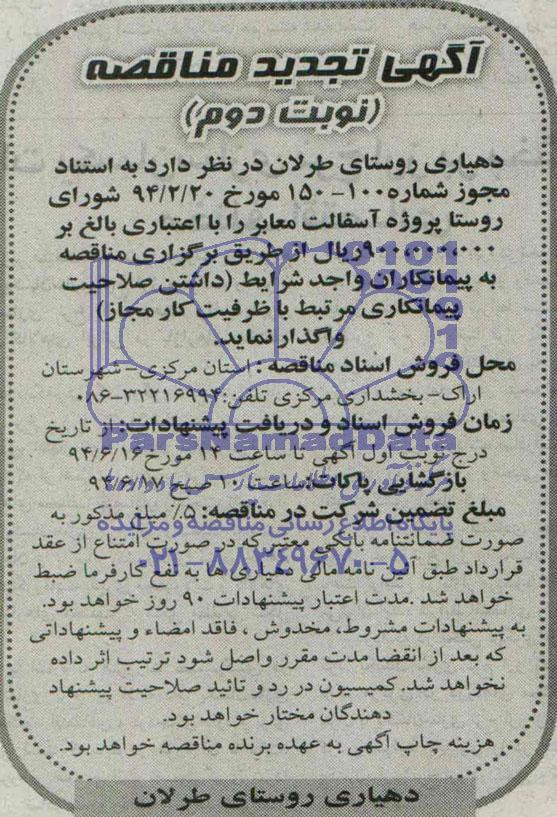 آگهی تجدید مناقصه
(نوبت دوم)
دهیاری روستای طرلان در نظر دارد به استناد
مجوز شماره ۱۰۰-۱۵۰ مورخ ۹۴/۲/۲۰ شورای
روستا پروژه آسفالت معابر را با اعتباری بالغ بر
۹۰۰۰۰۰۰۰۰۰ ریال از طریق برگزاری مناقصه
به پیمانکاران واجد شرایط (داشتن صلاحیت
پیمانکاری مرتبط با ظرفیت کار مجاز)
واگذار نماید.
محل فروش اسناد مناقصه : استان مرکزی- شهرستان
اراک- بخشداری مرکزی تلفن: ۳۲۲۱۶۹۹۴-۰۸۶
زمان فروش اسناد و دریافت پیشنهادات: از تاریخ
درج نوبت اول آگهی تا ساعت ۱۴ مورخ ۹۴/۶/۱۶
بازگشایی پاکات: ساعت ۱۰ صبح ۹۴/۶/۱۷
مبلغ تضمین شرکت در مناقصه: ۵٪ مبلغ مذکور به
صورت ضمانتنامه بانکی معتبر که در صورت امتناع از عقد
قرارداد طبق آئین نامه مالی دهیاری ها به نفع کارفرما ضبط
خواهد شد .مدت اعتبار پیشنهادات ۹۰ روز خواهد بود.
به پیشنهادات مشروط، مخدوش ، فاقد امضاء و پیشنهاداتی
که بعد از انقضا مدت مقرر واصل شود ترتیب اثر داده
نخواهد شد. کمیسیون در رد و تائید صلاحیت پیشنهاد
دهندگان مختار خواهد بود.
هزینه چاپ آگهی به عهده برنده مناقصه خواهد بود.
دهیاری روستای طرلان
ParsNamadData
پایگاه اطلاع رسانی مناقصه و مزایده
۰۲۱-۸۸۳۴۹۶۷۰-۵